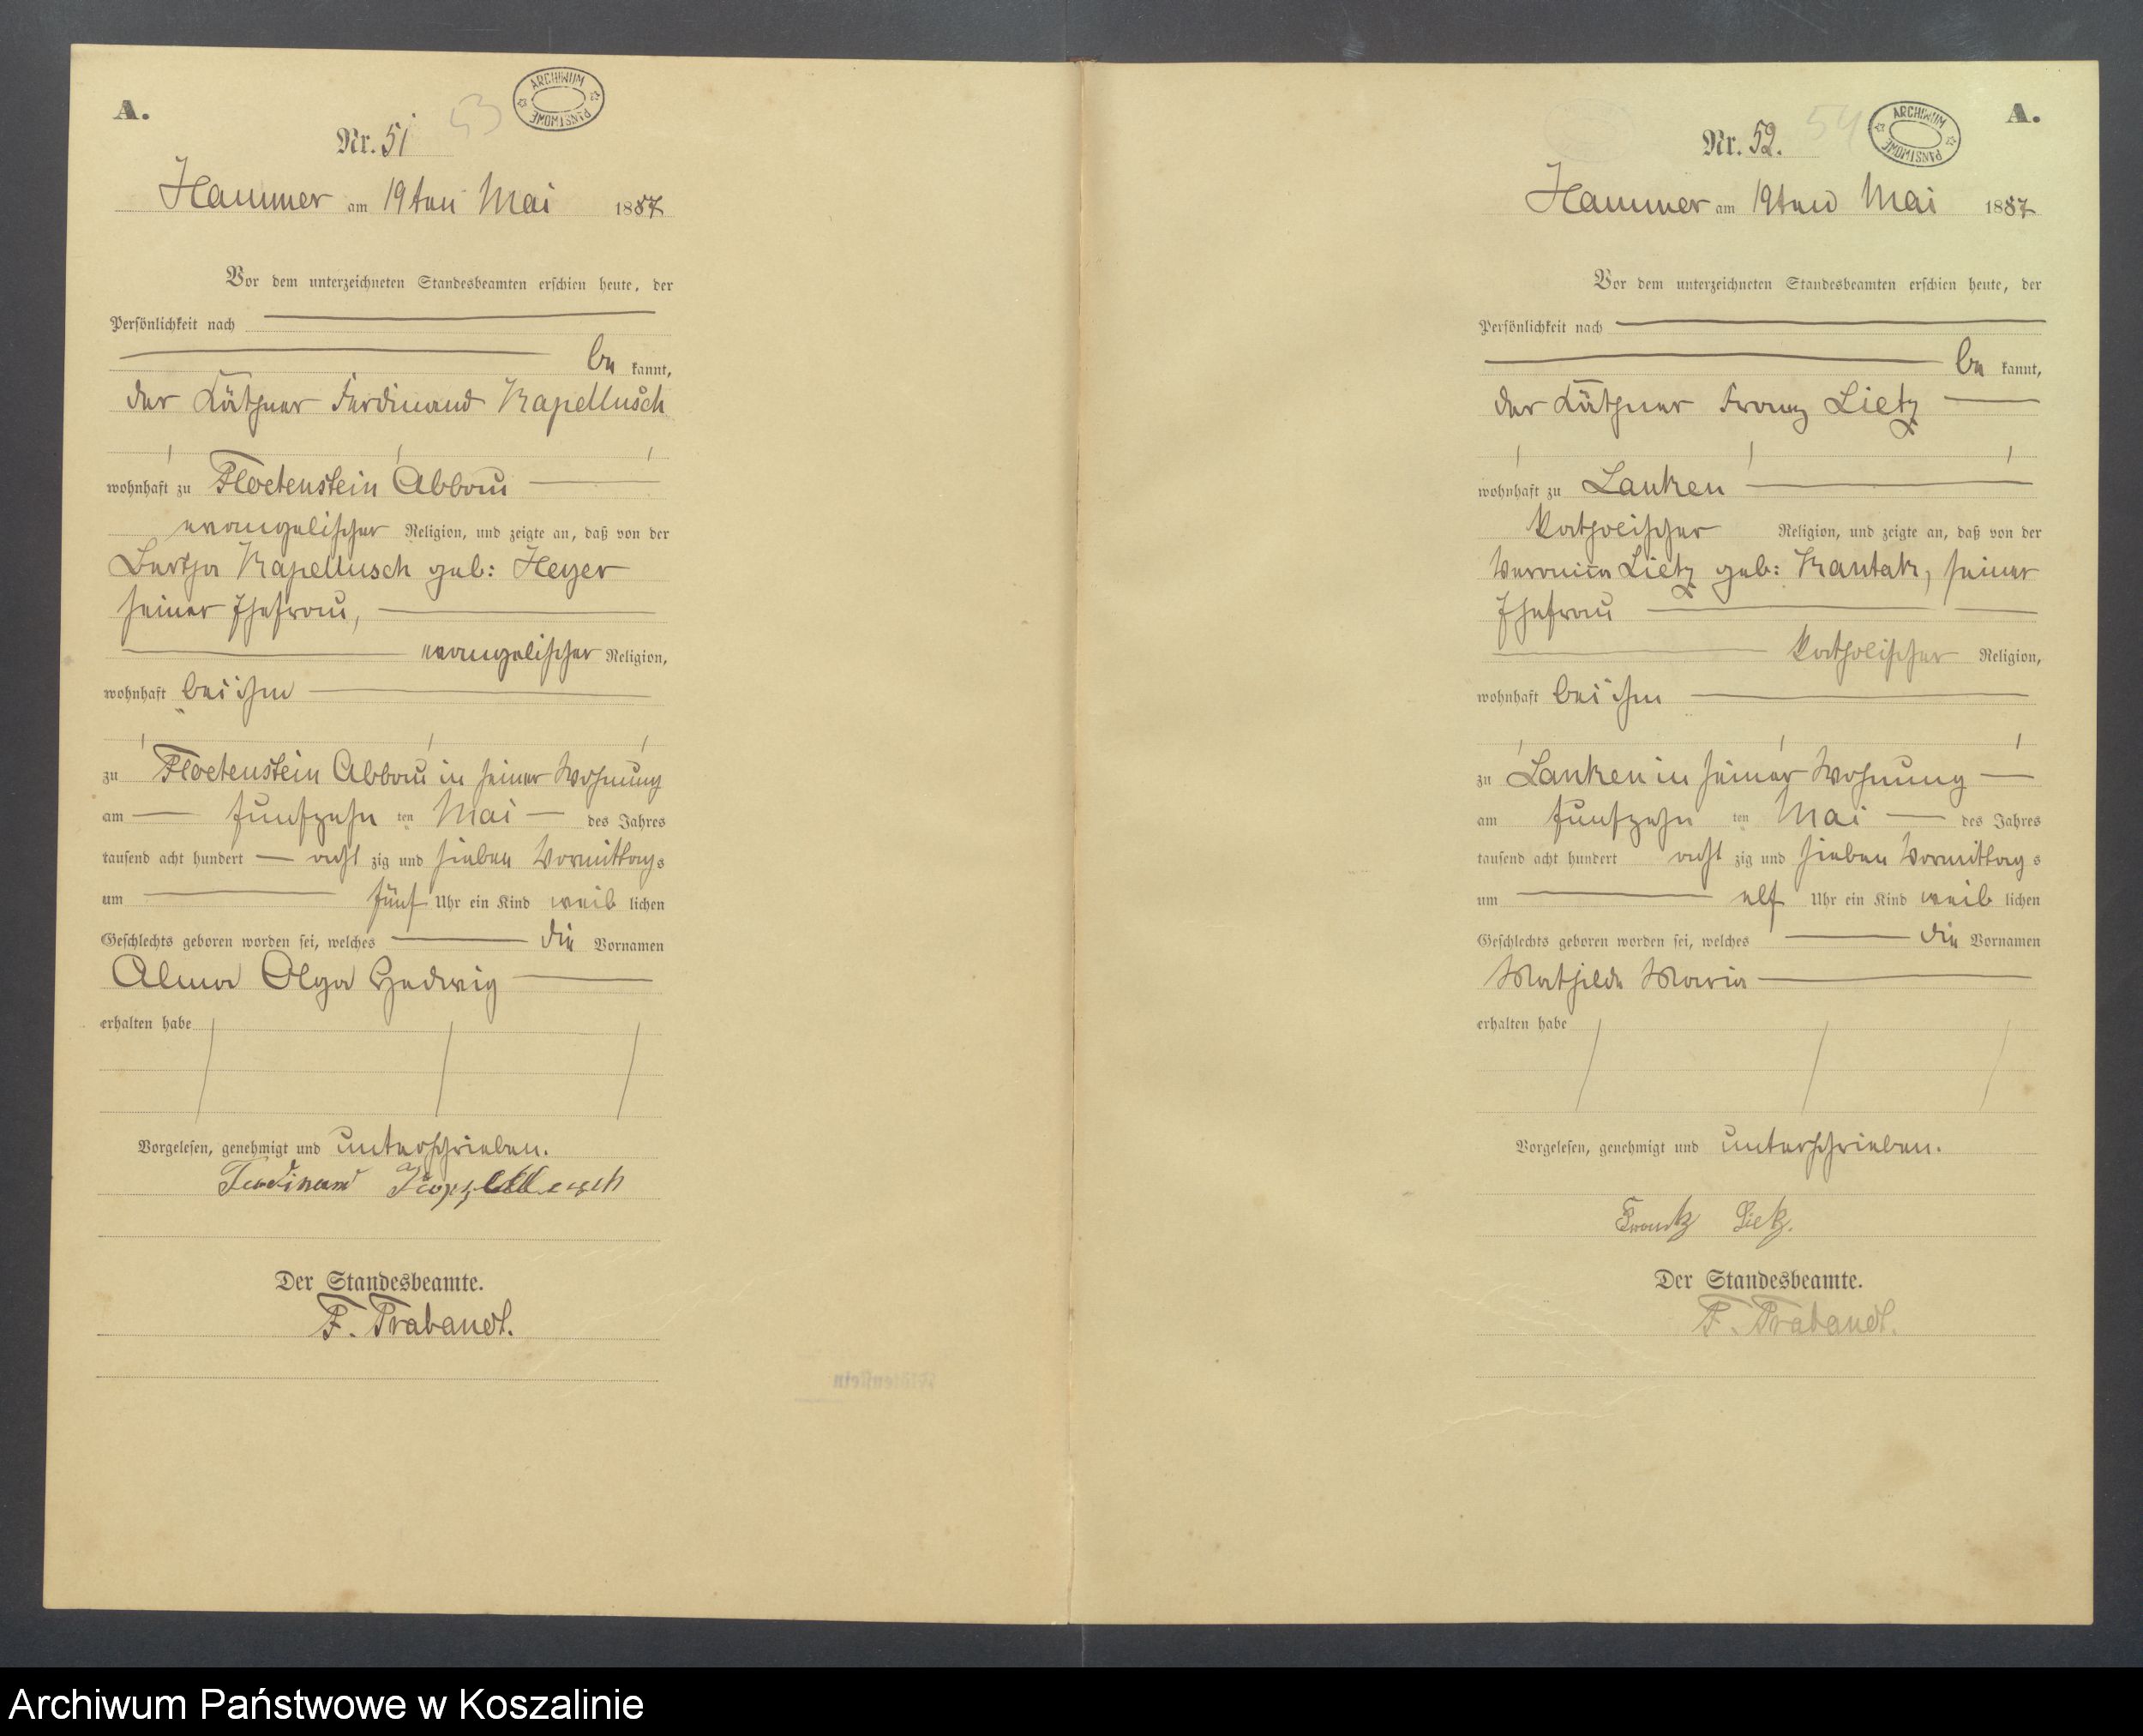 A.
Nr. 51
53
ARCHIWUM PAŃSTWOWE
Hammer am 19ten Mai 1887
Vor dem unterzeichneten Standesbeamten erschien heute, der
Persönlichkeit nach
be kannt,
der Käthner Ferdinand Kapellusch
wohnhaft zu Floetenstein Abbau
evangelischer Religion, und zeigte an, daß von der
Bertha Kapellusch geb: Heyer
seiner Ehefrau,
evangelischer Religion,
wohnhaft bei ihm
zu Floetenstein Abbau in seiner Wohnung
am fünfzehn ten Mai des Jahres
tausend acht hundert acht zig und sieben Vormittags
um fünf Uhr ein Kind weib lichen
Geschlechts geboren worden sei, welches die Vornamen
Alma Olga Hedwig
erhalten habe
Vorgelesen, genehmigt und unterschrieben.
Ferdinand Kapellusch
Der Standesbeamte.
F. Trabandt.
A.
Nr. 52.
54
ARCHIWUM PAŃSTWOWE
Hammer am 19ten Mai 1887
Vor dem unterzeichneten Standesbeamten erschien heute, der
Persönlichkeit nach
be kannt,
der Käthner Franz Lietz
wohnhaft zu Lanken
katholischer Religion, und zeigte an, daß von der
Veronica Lietz geb: Kantak, seiner
Ehefrau
katholischer Religion,
wohnhaft bei ihm
zu Lanken in seiner Wohnung
am fünfzehn ten Mai des Jahres
tausend acht hundert acht zig und sieben Vormittags
um elf Uhr ein Kind weib lichen
Geschlechts geboren worden sei, welches die Vornamen
Mathilde Maria
erhalten habe
Vorgelesen, genehmigt und unterschrieben.
Frantz Lietz.
Der Standesbeamte.
F. Trabandt.
Archiwum Państwowe w Koszalinie